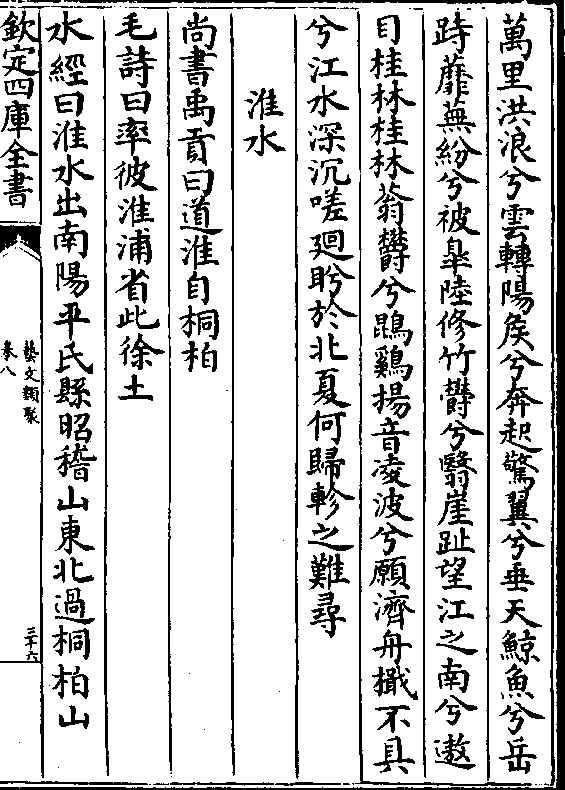 萬里洪浪兮雲轉陽矦兮奔起驚翼兮垂天鯨魚兮岳
跱蘼蕪紛兮被臯陸修竹欝兮翳崖趾望江之南兮遨
目桂林桂林蓊欝兮鵾鷄揚音凌波兮願濟舟檝不具
兮江水深沉嗟廻眄於北夏何歸軫之難尋
淮水
尚書禹貢曰道淮自桐柏
毛詩曰率彼淮浦省此徐土
水經曰淮水出南陽平氏縣昭稽山東北過桐柏山
欽定四庫全書
藝文類聚
卷八
三十六